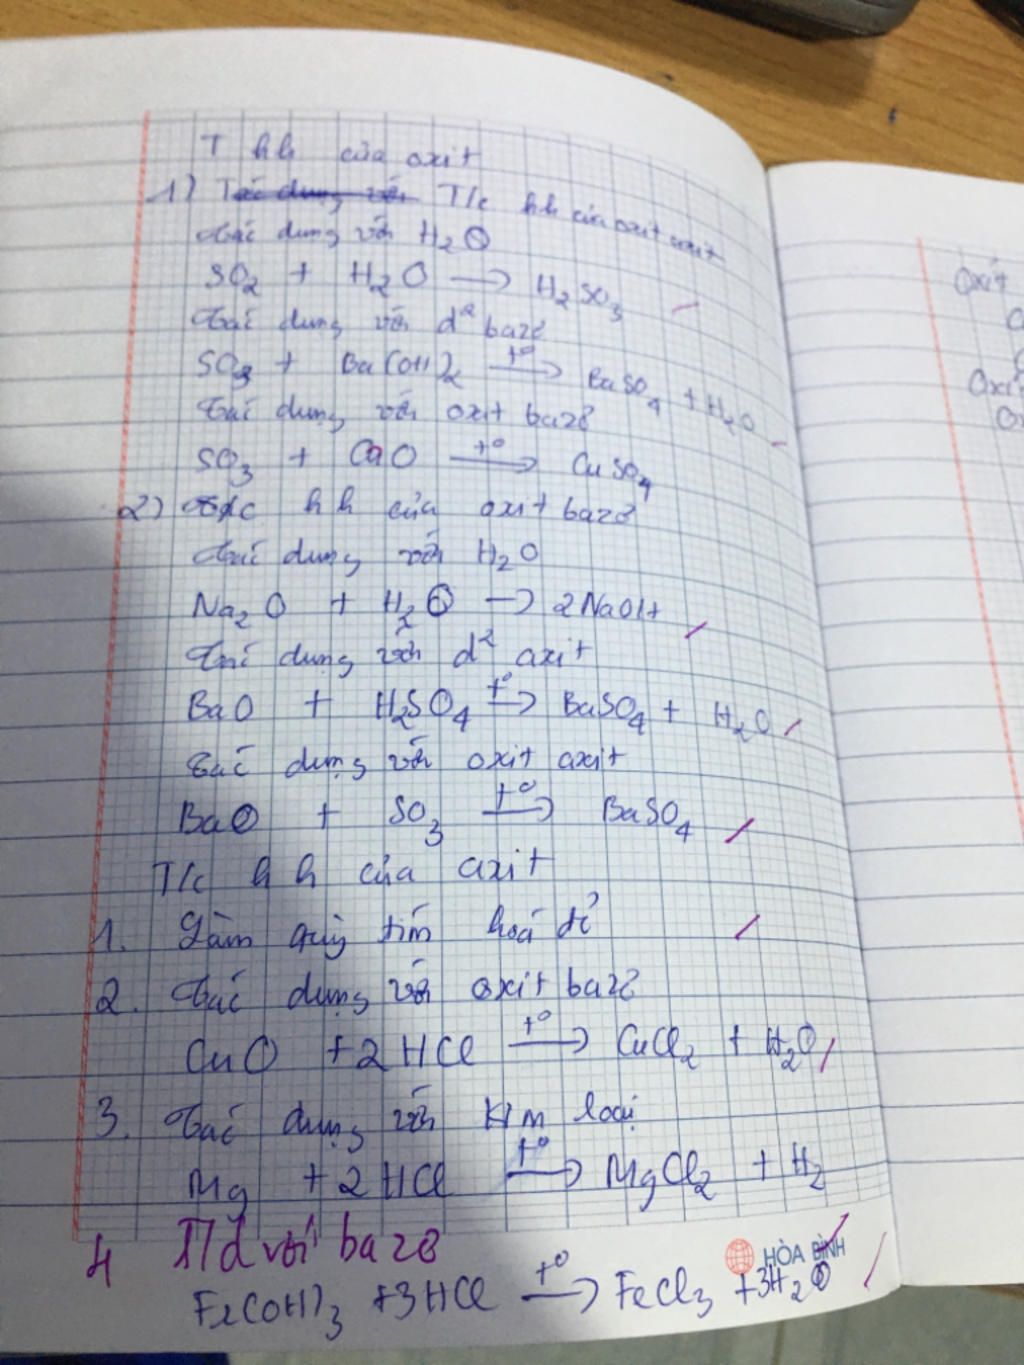 T hh của oxit
1) T/c hh của oxit axit
Tác dụng với H2O
SO2 + H2O → H2SO3
Tác dụng với d² bazơ
SO3 + Ba(OH)2 t° → BaSO4 + H2O
Tác dụng với oxit bazơ
SO3 + CaO t° → CuSO4
2) T/c hh của oxit bazơ
Tác dụng với H2O
Na2O + H2O → 2NaOH
Tác dụng với d² axit
BaO + H2SO4 t° → BaSO4 + H2O
Tác dụng với oxit axit
BaO + SO3 t° → BaSO4
T/c hh của axit
1. Làm quỳ tím hoá đỏ
2. Tác dụng với oxit bazơ
CuO + 2HCl t° → CuCl2 + H2O
3. Tác dụng với kim loại
Mg + 2HCl t° → MgCl2 + H2
4 T/d với bazơ
HÒA BÌNH
Fe(OH)3 + 3HCl t° → FeCl3 + 3H2O
Oxit